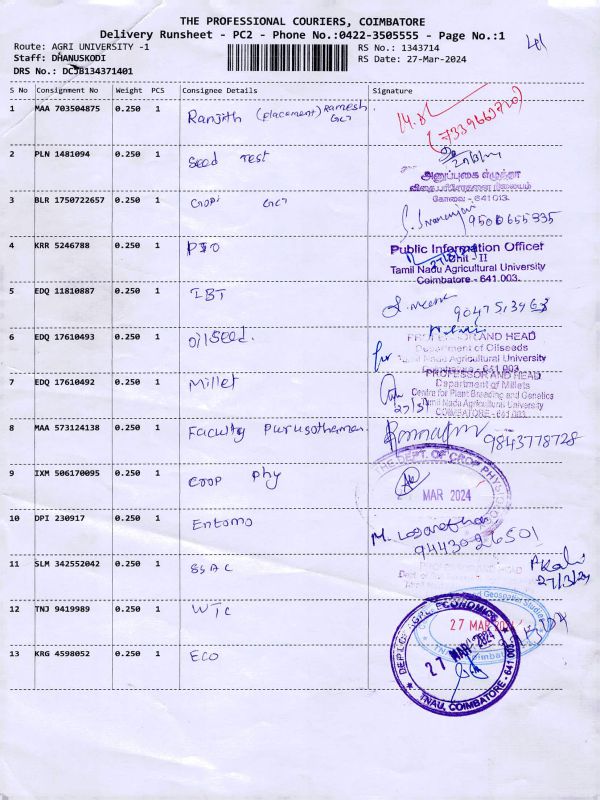 THE PROFESSIONAL COURIERS, COIMBATORE
Delivery Runsheet - PC2 - Phone No.:0422-3505555 - Page No.:1
Route: AGRI UNIVERSITY -1
RS No.: 1343714
Staff: DHANUSKODI
RS Date: 27-Mar-2024
DRS No.: DCJB134371401
S No Consignment No Weight PCS Consignee Details Signature
1 MAA 703504875 0.250 1 Ranjith (placement) Ramesh
2 PLN 1481094 0.250 1 Seed Test
அனுப்புகை எழுத்தர்
விதை பரிசோதனை நிலையம்
கோவை - 641 013.
3 BLR 1750722657 0.250 1
4 KRR 5246788 0.250 1 PIO
Public Information Officer
Unit - II
Tamil Nadu Agricultural University
Coimbatore - 641 003.
5 EDQ 11810887 0.250 1 IBT
6 EDQ 17610493 0.250 1 Oil Seed.
PROFESSOR AND HEAD
Department of Oilseeds
Tamil Nadu Agricultural University
Coimbatore - 641 003
7 EDQ 17610492 0.250 1 Millet
PROFESSOR AND HEAD
Department of Millets
Centre for Plant Breeding and Genetics
Tamil Nadu Agricultural University
COIMBATORE - 641 003.
8 MAA 573124138 0.250 1 Faculty Purusothaman. 9843778728
THE DEPT. OF CROP PHYSIOLOGY
9 IXM 506170095 0.250 1 Crop Phy
MAR 2024
10 DPI 230917 0.250 1 Entomo
9443026501
11 SLM 342552042 0.250 1 SS AC
27/3/24
12 TNJ 9419989 0.250 1 WTC
and Geospatial Studies
27 MAR
13 KRG 4598052 0.250 1 ECO
DEPT. OF AGRL. ECONOMICS
27 MAR 2024
TNAU, COIMBATORE - 641 003.